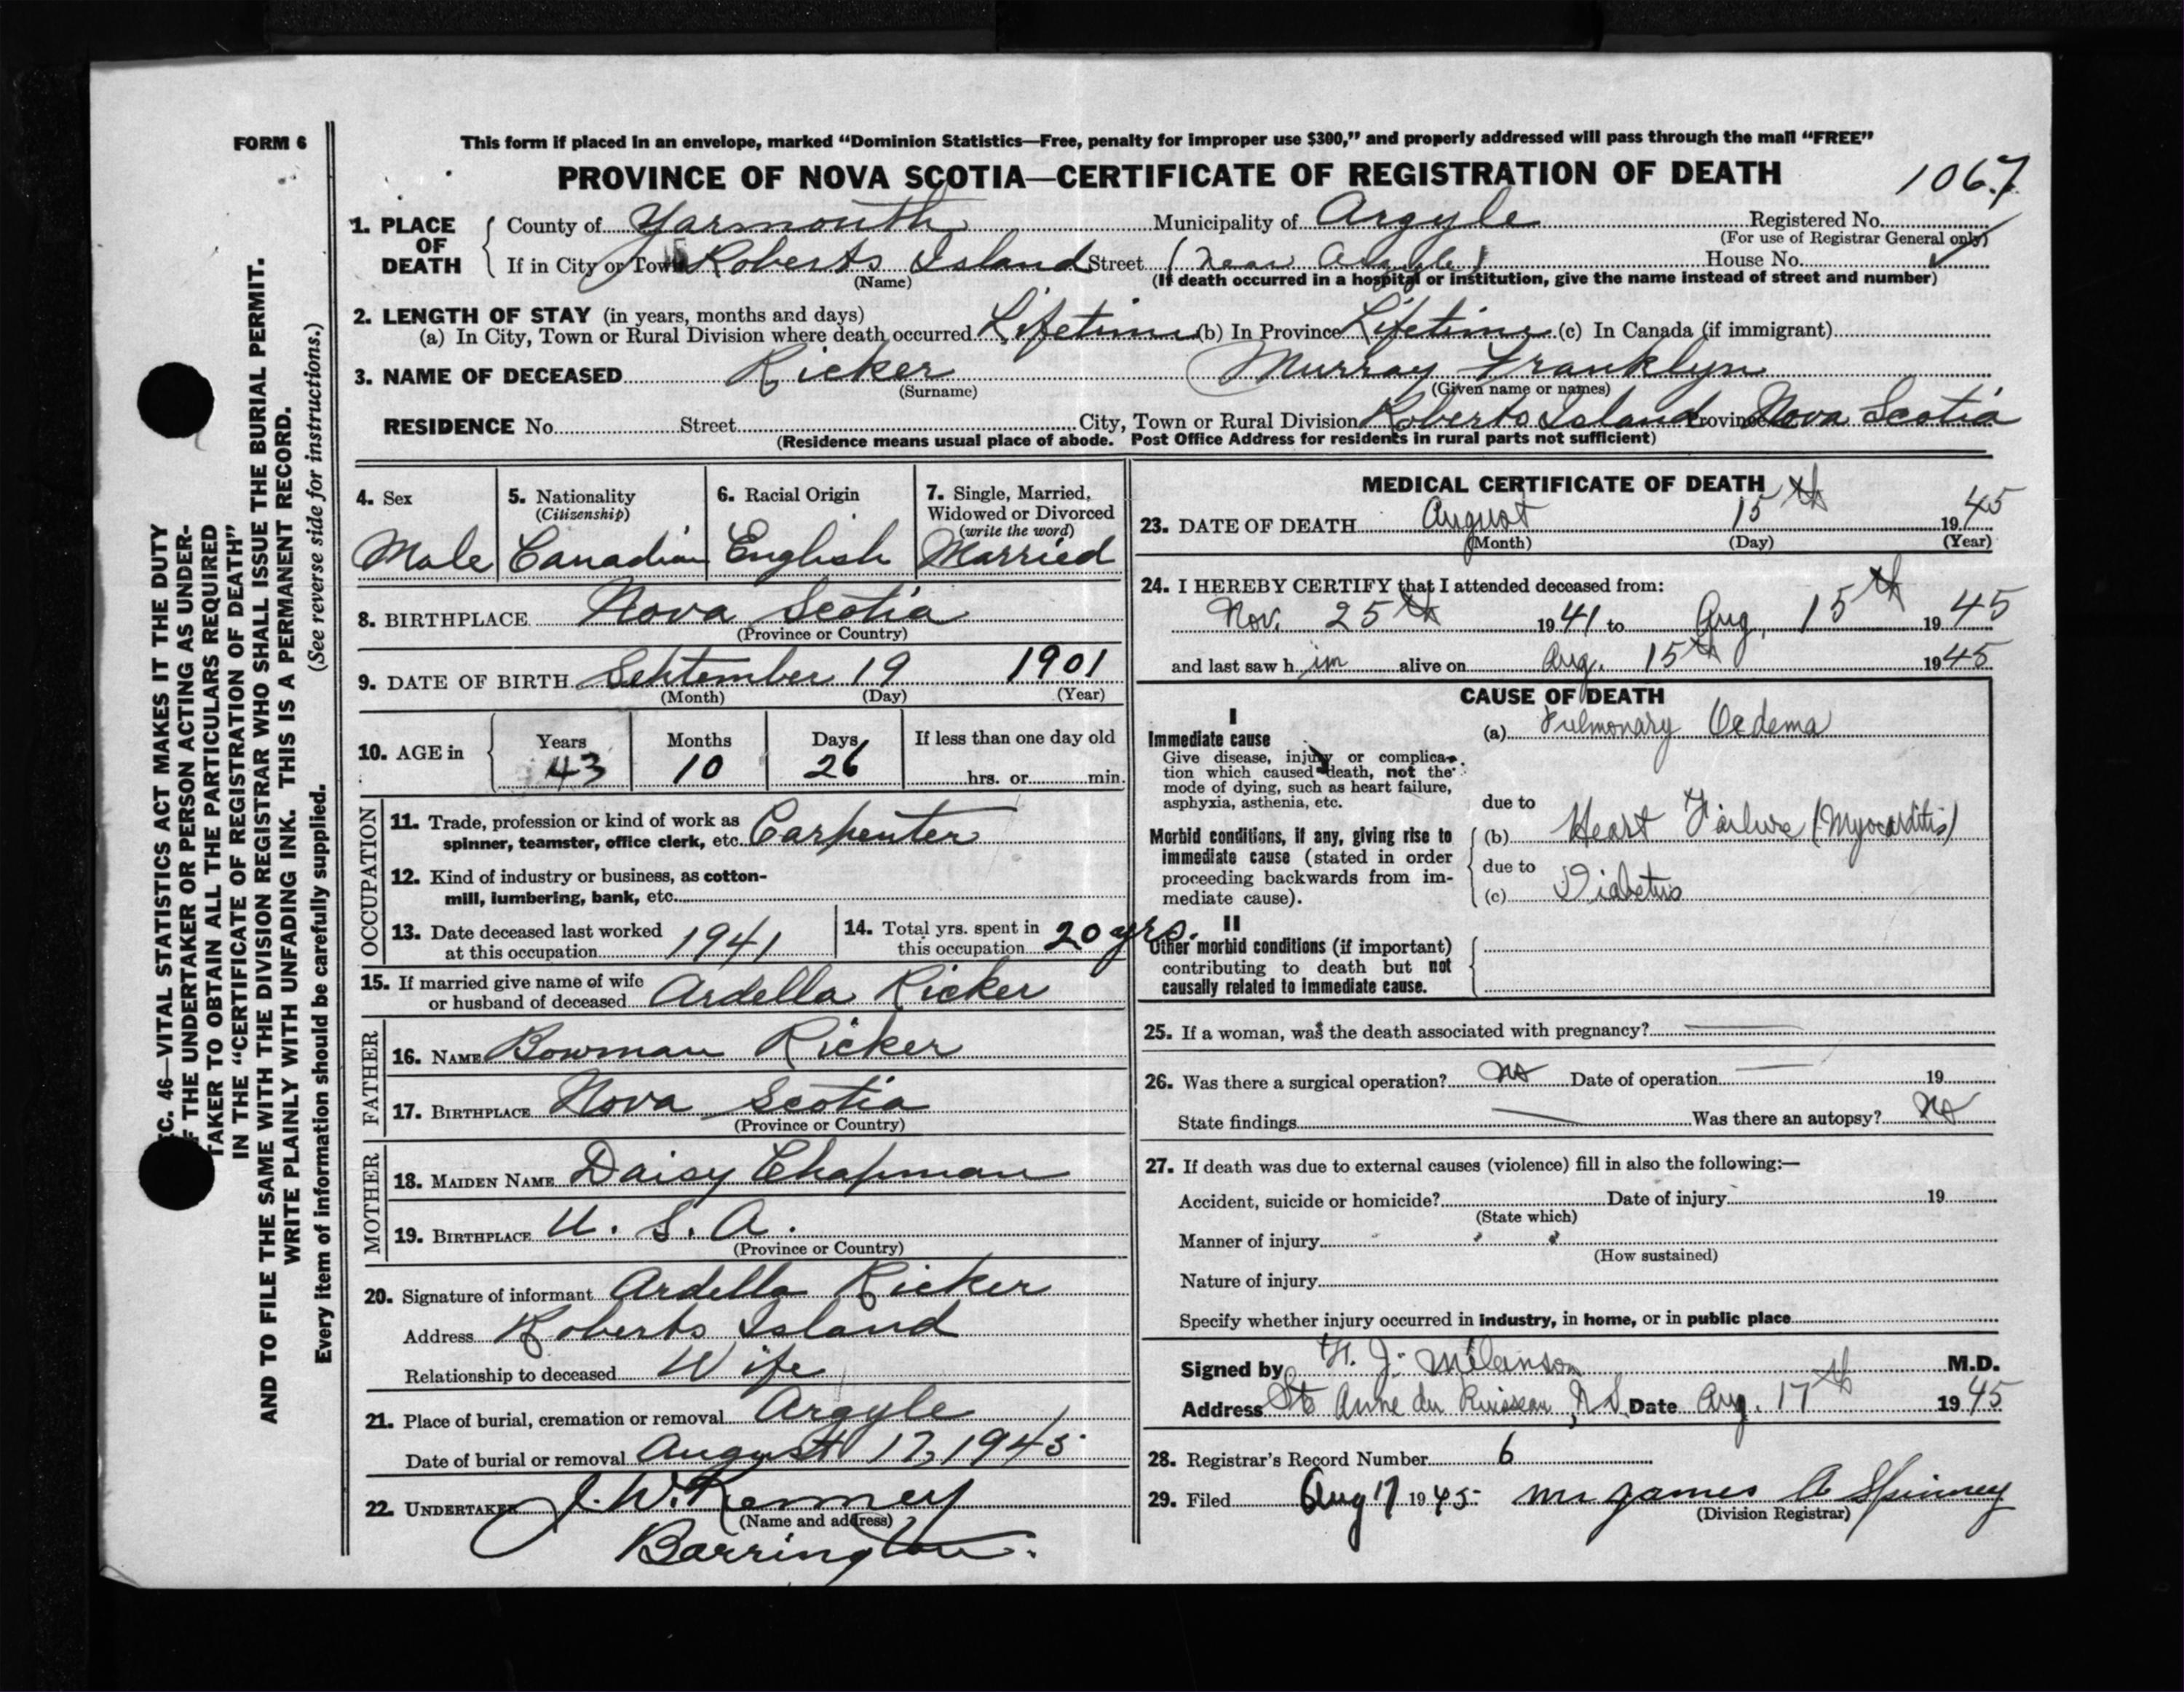 FORM 6
This form if placed in an envelope, marked “Dominion Statistics—Free, penalty for improper use $300,” and properly addressed will pass through the mail “FREE”
PROVINCE OF NOVA SCOTIA—CERTIFICATE OF REGISTRATION OF DEATH
1067
1. PLACE OF DEATH
County of Yarmouth Municipality of Argyle Registered No.
(For use of Registrar General only)
If in City or Town Roberts Island Street (Near Argyle) House No.
(Name) (If death occurred in a hospital or institution, give the name instead of street and number)
2. LENGTH OF STAY (in years, months and days)
(a) In City, Town or Rural Division where death occurred Lifetime (b) In Province Lifetime (c) In Canada (if immigrant)
3. NAME OF DECEASED Ricker Murray Franklyn
(Surname) (Given name or names)
RESIDENCE No. Street City, Town or Rural Division Roberts Island Province Nova Scotia
(Residence means usual place of abode. Post Office Address for residents in rural parts not sufficient)
4. Sex
Male
5. Nationality
(Citizenship)
Canadian
6. Racial Origin
English
7. Single, Married,
Widowed or Divorced
(write the word)
Married
8. BIRTHPLACE Nova Scotia
(Province or Country)
9. DATE OF BIRTH September 19 1901
(Month) (Day) (Year)
10. AGE in Years Months Days If less than one day old
43 10 26 hrs. or min.
OCCUPATION
11. Trade, profession or kind of work as
spinner, teamster, office clerk, etc. Carpenter
12. Kind of industry or business, as cotton-
mill, lumbering, bank, etc.
13. Date deceased last worked
at this occupation 1941
14. Total yrs. spent in
this occupation 20 yrs.
15. If married give name of wife
or husband of deceased Ardella Ricker
FATHER
16. NAME Bowman Ricker
17. BIRTHPLACE Nova Scotia
(Province or Country)
MOTHER
18. MAIDEN NAME Daisy Chapman
19. BIRTHPLACE U. S. A.
(Province or Country)
20. Signature of informant Ardella Ricker
Address Roberts Island
Relationship to deceased Wife
21. Place of burial, cremation or removal Argyle
Date of burial or removal August 17, 1945
22. UNDERTAKER J. W. Kenney
(Name and address)
Barrington.
MEDICAL CERTIFICATE OF DEATH
23. DATE OF DEATH August 15th 1945
(Month) (Day) (Year)
24. I HEREBY CERTIFY that I attended deceased from:
Nov. 25th 1941 to Aug. 15th 1945
and last saw him alive on Aug. 15th 1945
CAUSE OF DEATH
I
Immediate cause
Give disease, injury or complica-
tion which caused death, not the
mode of dying, such as heart failure,
asphyxia, asthenia, etc.
(a) Pulmonary Oedema
due to
Morbid conditions, if any, giving rise to
immediate cause (stated in order
proceeding backwards from im-
mediate cause).
(b) Heart Failure (Myocarditis)
due to
(c) Diabetus
II
Other morbid conditions (if important)
contributing to death but not
causally related to immediate cause.
25. If a woman, was the death associated with pregnancy?
26. Was there a surgical operation? No Date of operation 19
State findings Was there an autopsy? No
27. If death was due to external causes (violence) fill in also the following:—
Accident, suicide or homicide? Date of injury 19
(State which)
Manner of injury
(How sustained)
Nature of injury
Specify whether injury occurred in industry, in home, or in public place
Signed by H. J. Melanson M.D.
Address Ste Anne du Ruisseau, N.S. Date Aug. 17th 1945
28. Registrar's Record Number 6
29. Filed Aug 17 1945 Mrs James A Spinney
(Division Registrar)
C. 46—VITAL STATISTICS ACT MAKES IT THE DUTY
F THE UNDERTAKER OR PERSON ACTING AS UNDER-
TAKER TO OBTAIN ALL THE PARTICULARS REQUIRED
IN THE “CERTIFICATE OF REGISTRATION OF DEATH”
AND TO FILE THE SAME WITH THE DIVISION REGISTRAR WHO SHALL ISSUE THE BURIAL PERMIT.
WRITE PLAINLY WITH UNFADING INK. THIS IS A PERMANENT RECORD.
Every item of information should be carefully supplied. (See reverse side for instructions.)